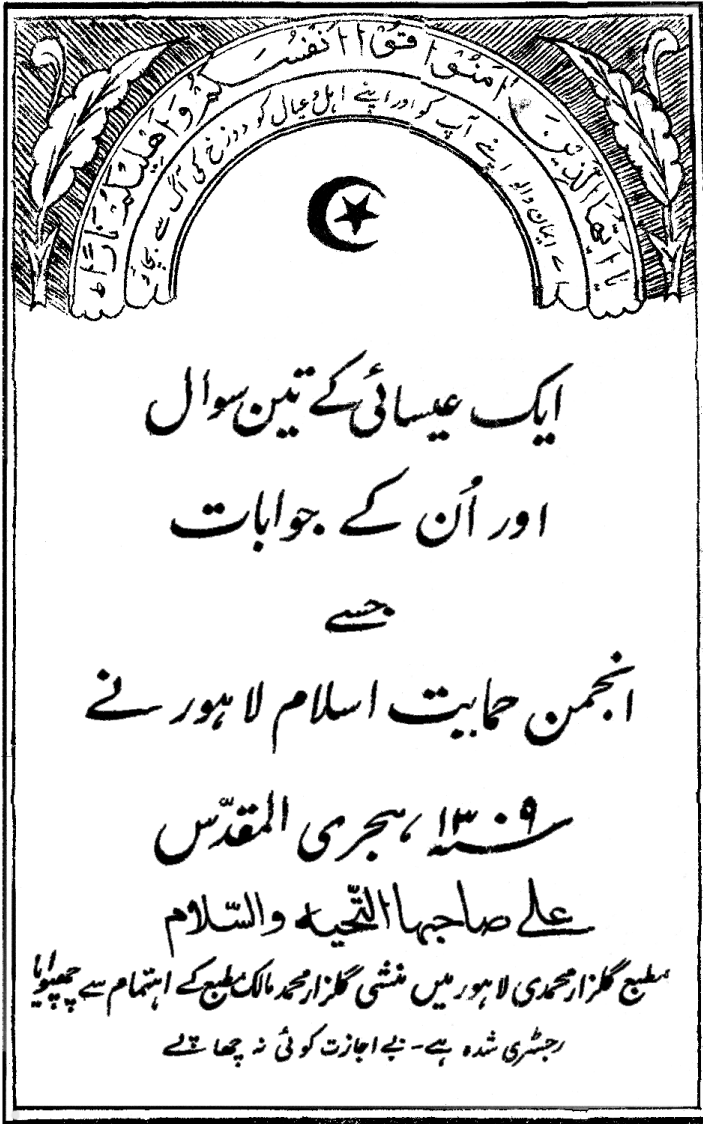 یا ایها الذین امنوا قوا انفسکم و اهلیکم نارا
اے ایمان والو اپنے آپ کو اور اپنے اہل و عیال کو دوزخ کی آگ سے بچاؤ
ایک عیسائی کے تین سوال
اور اُن کے جوابات
جسے
انجمن حمایت اسلام لاہور نے
سنہ ۱۳۰۹ ہجری المقدّس
علےٰ صاحبہا التّحیہ والسّلام
مطبع گلزار محمدی لاہور میں منشی گلزار محمد مالک مطبع کے اہتمام سے چھپوایا
رجسٹری شدہ ہے۔ بے اجازت کوئی نہ چھاپے